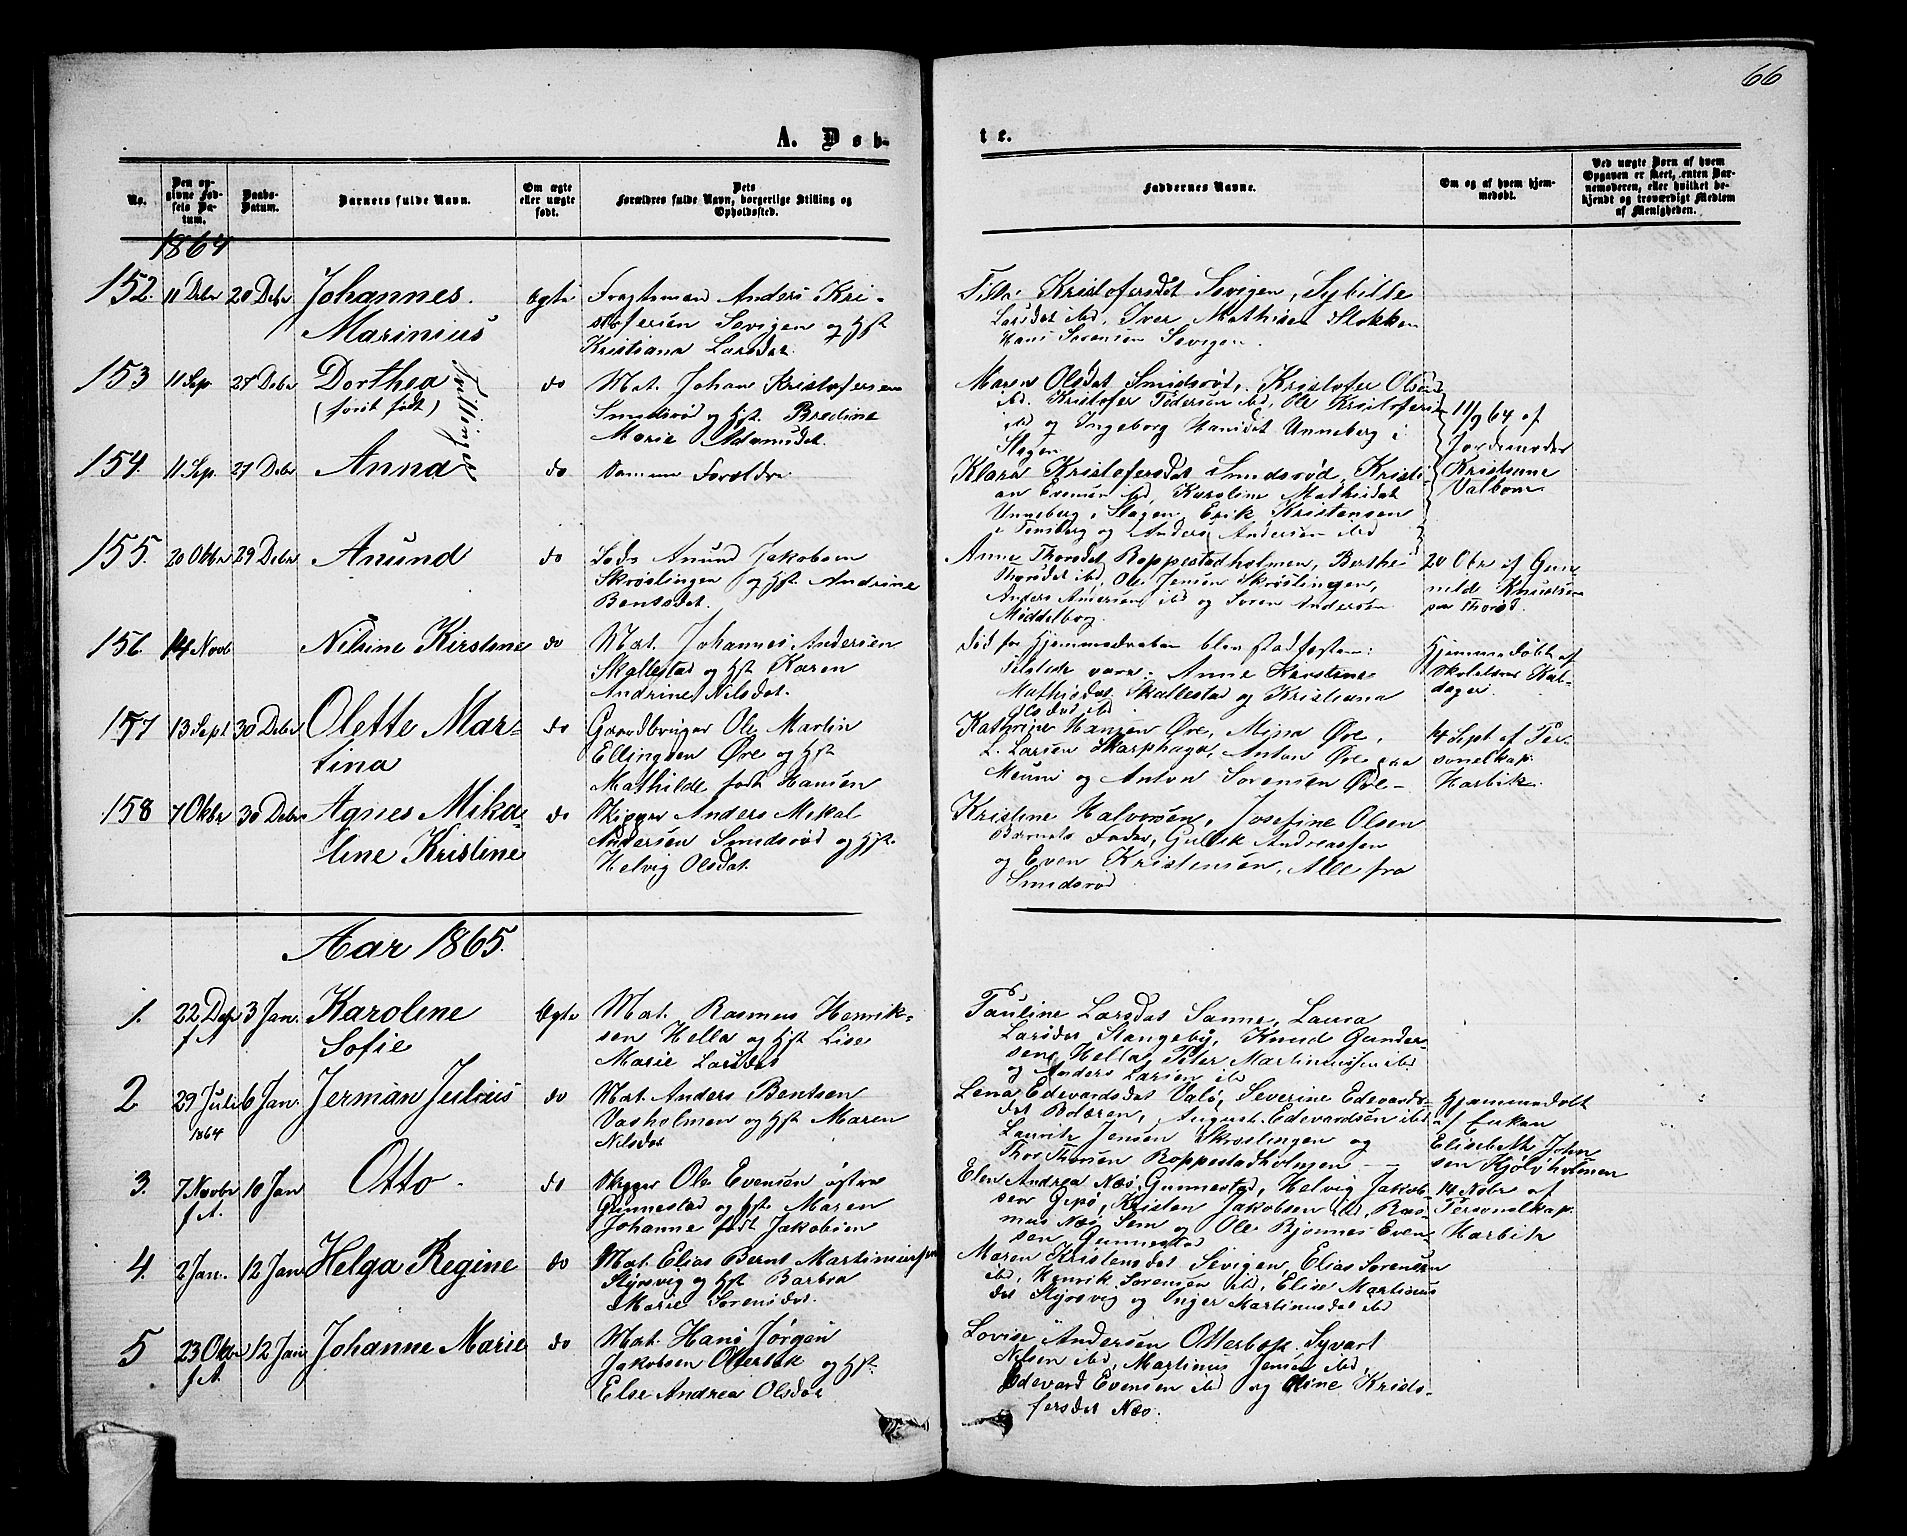 66
A. Døb-
te.
No.
Den op-
givne Fød-
sels Da-
tum.
Daabs-
Datum.
Barnets fulde Navn.
Om ægte
eller uægte
født.
Dets
Forældres fulde Navn, borgerlige Stilling og
Opholdssted.
Faddernes Navne.
Om og af hvem hjem-
medøbt.
Ved uægte Børn af hvem
Opgaven er skeet, enten Bar-
nemoderen, eller hvilket be-
kjendt og troværdigt Medlem
af Menigheden.
1864
152. 11 Debr 20 Debr Johannes
Marinius
Ægte Fragtsmand Anders Kri-
stofersen Sevigen og Hst
Kristiana Larsdat.
Kristofersdat Sevigen, Sybille
Larsdat ibd, Iver Mathisen Stokken
Hans Sorensen Sevigen.
153 11 Sep. 27 Debr Dorthea
(først født)
Tvillinger
do Mat. Johan Kristofersen
Smidsrød og Hst Bredine
Marie Adamsdat.
Maren Olsdat Smidsrød, Kristofer Olsen
ibd. Kristofer Pedersen ibd, Ole Kristofersen
ibd og Ingeborg Hansdat Unneberg i
Slagen
11/9 64 af
Jordemoder
Kristiane
Valbom.
154. 11 Sep. 27 Debr Anna
do Samme Forældre
Klara Kristofersdat Smidsrød, Kristi-
an Evensen ibd, Karoline Mathisdat
Unneberg i Slagen, Erik Kristensen
i Tønsberg og Anders Andersen ibd
155. 20 Oktbr 29 Debr Anund
do Lods Anund Jakobsen
Skrøslingen og Hst Andrine
Bentsdat.
Anne Thorsdat Roppestadholmen, Berthe
Thorsdat ibd, Ole Jensen Skrøslingen,
Anders Andersen ibd og Soren Andersen
Middelborg
20 Obr af Gun-
nelde Knudsen
paa Thorød.
156 14 Novb Nilsine Kirstine
do Mat. Johannes Andersen
Skallestad og Hst Karen
Andrine Nilsdat.
Død før Hjemmedaaben blev stadfæstet:
Tilstede vare: Anne Kristine
Mathisdat Skallestad og Kristiana
Olsdat ibd.
Hjemmedøbt af
Skolelærer Kal-
dager.
157 13 Sept 30 Debr Olette Mar-
tina
do Gaardbruger Ole Martin
Ellingsen Øre og Hst
Mathilde født Hansen
Kathrine Hansen Øre, Mina Øre,
L. Larsen Skarphaga, Anton Øre paa
Meum og Anton Sorensen Øre-
14 Sept af Per-
sonelkap.
Harbitz.
158 7 Oktbr 30 Debr Agnes Mika-
line Kristine
do Skipper Anders Mikal
Andersen Smidsrød og Hst.
Helvig Olsdat.
Kristine Halvorsen, Josefine Olsen
Barnets Fader, Gullik Andreassen
og Even Kristensen, Alle fra
Smidsrød
Aar 1865.
1. 22 Debr
f A
3 Jan. Karoline
Sofie
Ægte Mat. Rasmus Henrik-
sen Hella og Hst Lise
Marie Larsdat
Pauline Larsdat Sanne, Laura
Larsdat Stangeby, Knud Gunder-
sen Hella, Peter Martinussen ibd
og Anders Larsen ibd
2 29 Juli
1864
6 Jan. Jerman Julius
do Mat. Anders Bentsen
Vasholmen og Hst Maren
Nilsdat
Lena Edevardsdat Valø, Severine Edevards-
dat Bolæren, August Edevardsen ibd
Lauritz Jensen Skroslingen og
Thor Thorsen Roppestadholmen
Hjemmedøbt
af Enken
Elisebeth John-
sen Kjøløholmen
3. 7 Novbr
f A.
10 Jan Otto
do Skipper Ole Evensen østre
Gunnestad og Hst Maren
Johanne født Jakobsen
Elen Andrea Næs, Gunnestad, Helvig Jakob-
sen Gipø, Kristen Jakobsen ibd, Ras-
mus Næs Sem og Ole Bjønnes Even-
sen Gunnestad
14 Nobr af
Personelkap.
Harbitz
4. 2 Jan. 12 Jan Helga Regine
do Mat. Elias Bernt Martiniussen
Kjørsvig og Hst Barbra
Marie Sorensdat.
Maren Kristensdat Sevigen, Elias Sorensen
ibd, Henrik Sorensen ibd, Elise Martinus
dat Kjørsvig og Inger Martinusdat ibd
5 23 Oktbr
f A.
12 Jan Johanne Marie
do Mat. Hans Jørgen
Jakobsen Otterbæk og Hst.
Else Andrea Olsdat
Lovise Andersen Otterbæk. Syvart
Nilsen ibd, Martinus Jensen ibd,
Edevard Evensen ibd og Oline Kristo-
fersdat Næs.